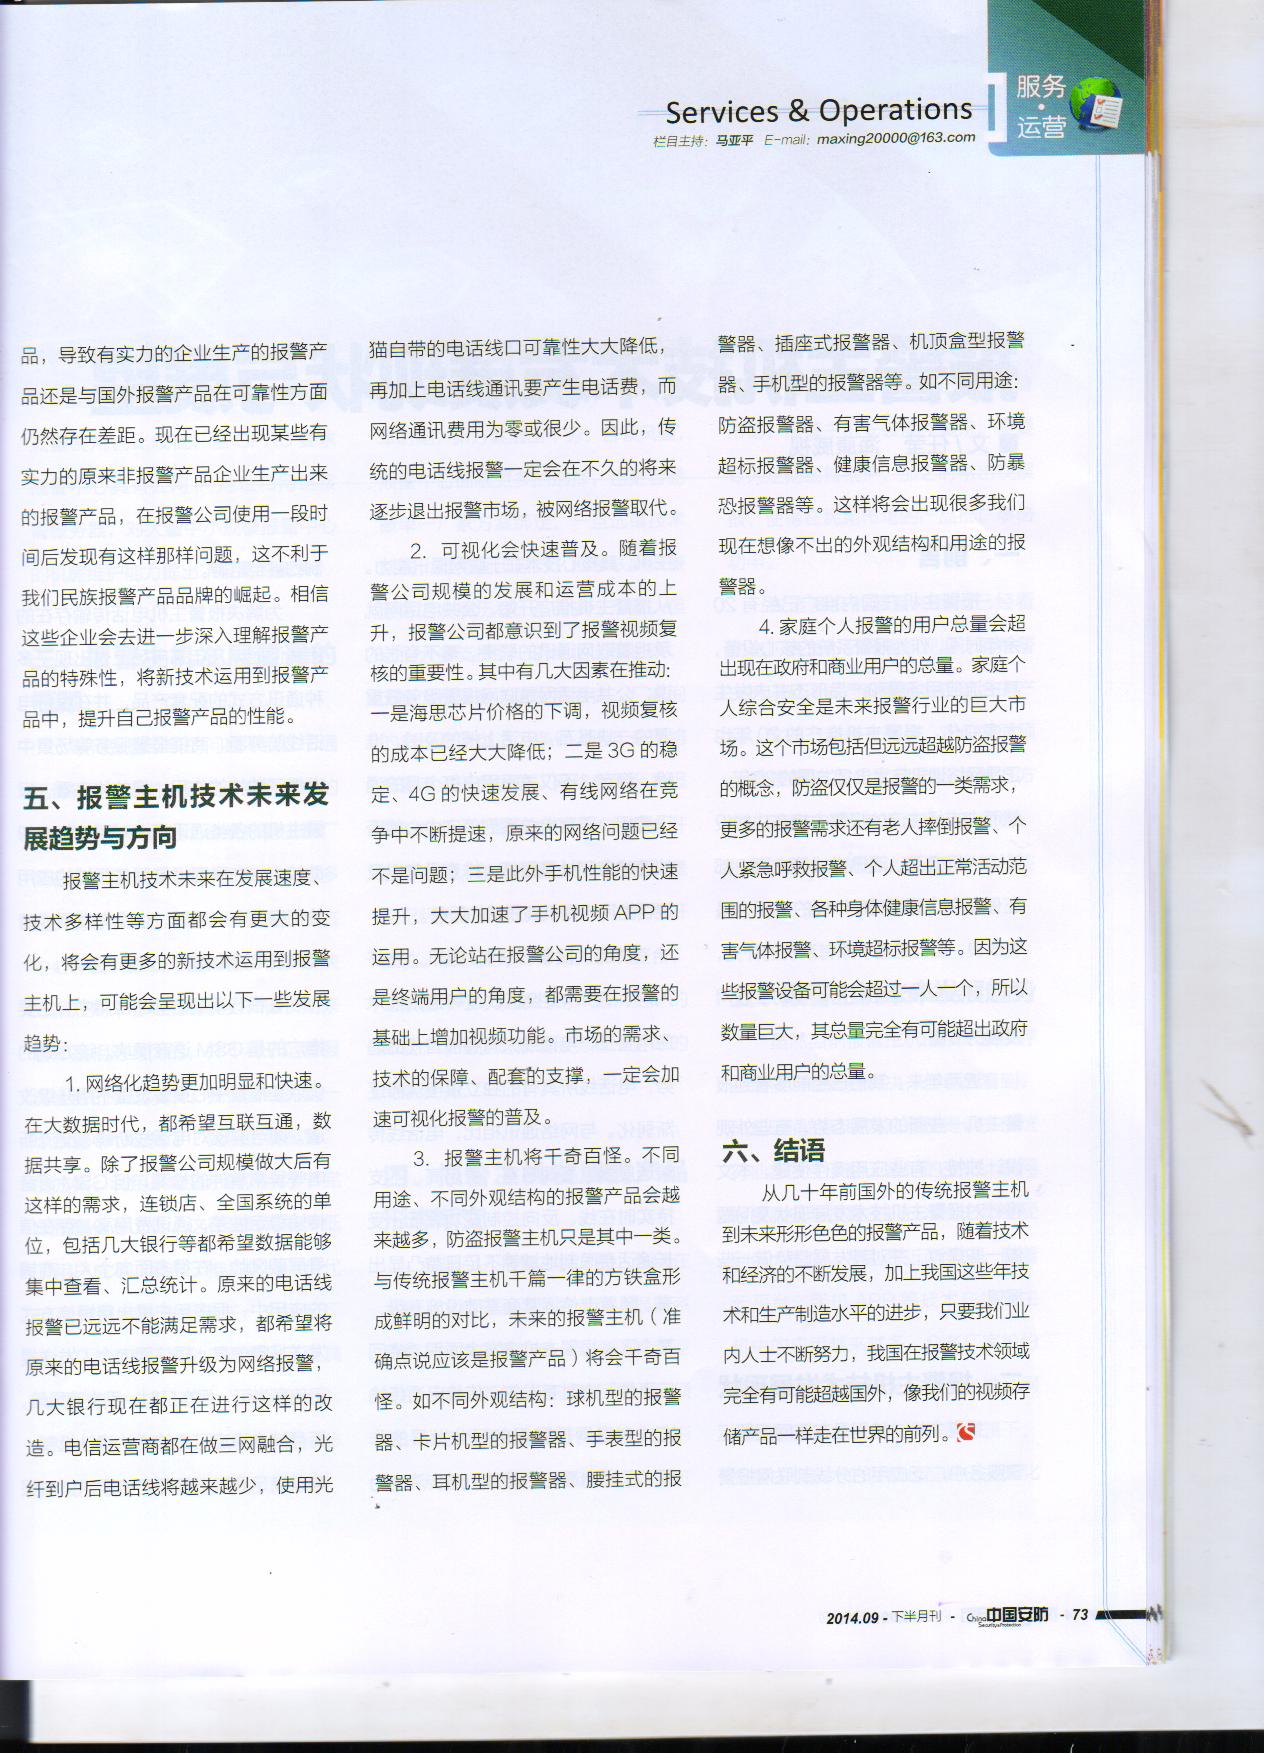 服务
·
运营
Services & Operations
栏目主持：马亚平 E-mail：maxing20000@163.com
品，导致有实力的企业生产的报警产
品还是与国外报警产品在可靠性方面
仍然存在差距。现在已经出现某些有
实力的原来非报警产品企业生产出来
的报警产品，在报警公司使用一段时
间后发现有这样那样问题，这不利于
我们民族报警产品品牌的崛起。相信
这些企业会去进一步深入理解报警产
品的特殊性，将新技术运用到报警产
品中，提升自己报警产品的性能。
五、报警主机技术未来发
展趋势与方向
报警主机技术未来在发展速度、
技术多样性等方面都会有更大的变
化，将会有更多的新技术运用到报警
主机上，可能会呈现出以下一些发展
趋势：
1. 网络化趋势更加明显和快速。
在大数据时代，都希望互联互通，数
据共享。除了报警公司规模做大后有
这样的需求，连锁店、全国系统的单
位，包括几大银行等都希望数据能够
集中查看、汇总统计。原来的电话线
报警已远远不能满足需求，都希望将
原来的电话线报警升级为网络报警，
几大银行现在都正在进行这样的改
造。电信运营商都在做三网融合，光
纤到户后电话线将越来越少，使用光
猫自带的电话线口可靠性大大降低，
再加上电话线通讯要产生电话费，而
网络通讯费用为零或很少。因此，传
统的电话线报警一定会在不久的将来
逐步退出报警市场，被网络报警取代。
2. 可视化会快速普及。随着报
警公司规模的发展和运营成本的上
升，报警公司都意识到了报警视频复
核的重要性。其中有几大因素在推动：
一是海思芯片价格的下调，视频复核
的成本已经大大降低；二是 3G 的稳
定、4G 的快速发展、有线网络在竞
争中不断提速，原来的网络问题已经
不是问题；三是此外手机性能的快速
提升，大大加速了手机视频 APP 的
运用。无论站在报警公司的角度，还
是终端用户的角度，都需要在报警的
基础上增加视频功能。市场的需求、
技术的保障、配套的支撑，一定会加
速可视化报警的普及。
3. 报警主机将千奇百怪。不同
用途、不同外观结构的报警产品会越
来越多，防盗报警主机只是其中一类。
与传统报警主机千篇一律的方铁盒形
成鲜明的对比，未来的报警主机（准
确点说应该是报警产品）将会千奇百
怪。如不同外观结构：球机型的报警
器、卡片机型的报警器、手表型的报
警器、耳机型的报警器、腰挂式的报
警器、插座式报警器、机顶盒型报警
器、手机型的报警器等。如不同用途：
防盗报警器、有害气体报警器、环境
超标报警器、健康信息报警器、防暴
恐报警器等。这样将会出现很多我们
现在想像不出的外观结构和用途的报
警器。
4. 家庭个人报警的用户总量会超
出现在政府和商业用户的总量。家庭个
人综合安全是未来报警行业的巨大市
场。这个市场包括但远远超越防盗报警
的概念，防盗仅仅是报警的一类需求，
更多的报警需求还有老人摔倒报警、个
人紧急呼救报警、个人超出正常活动范
围的报警、各种身体健康信息报警、有
害气体报警、环境超标报警等。因为这
些报警设备可能会超过一人一个，所以
数量巨大，其总量完全有可能超出政府
和商业用户的总量。
六、结语
从几十年前国外的传统报警主机
到未来形形色色的报警产品，随着技术
和经济的不断发展，加上我国这些年技
术和生产制造水平的进步，只要我们业
内人士不断努力，我国在报警技术领域
完全有可能超越国外，像我们的视频存
储产品一样走在世界的前列。
2014.09 - 下半月刊 - China 中国安防 - 73
Security&Protection